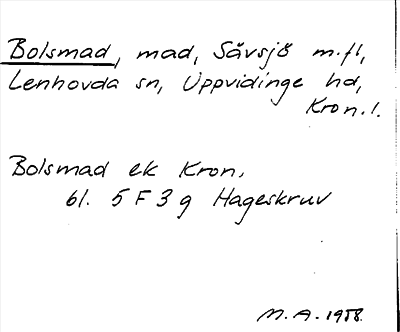 Bolsmad, mad, Sävsjö m.fl,
Lenhovda sn, Uppvidinge hd,
Kron.l.
Bolsmad ek Kron.
bl. 5 F 3 g Hageskruv
M.A. 1958.